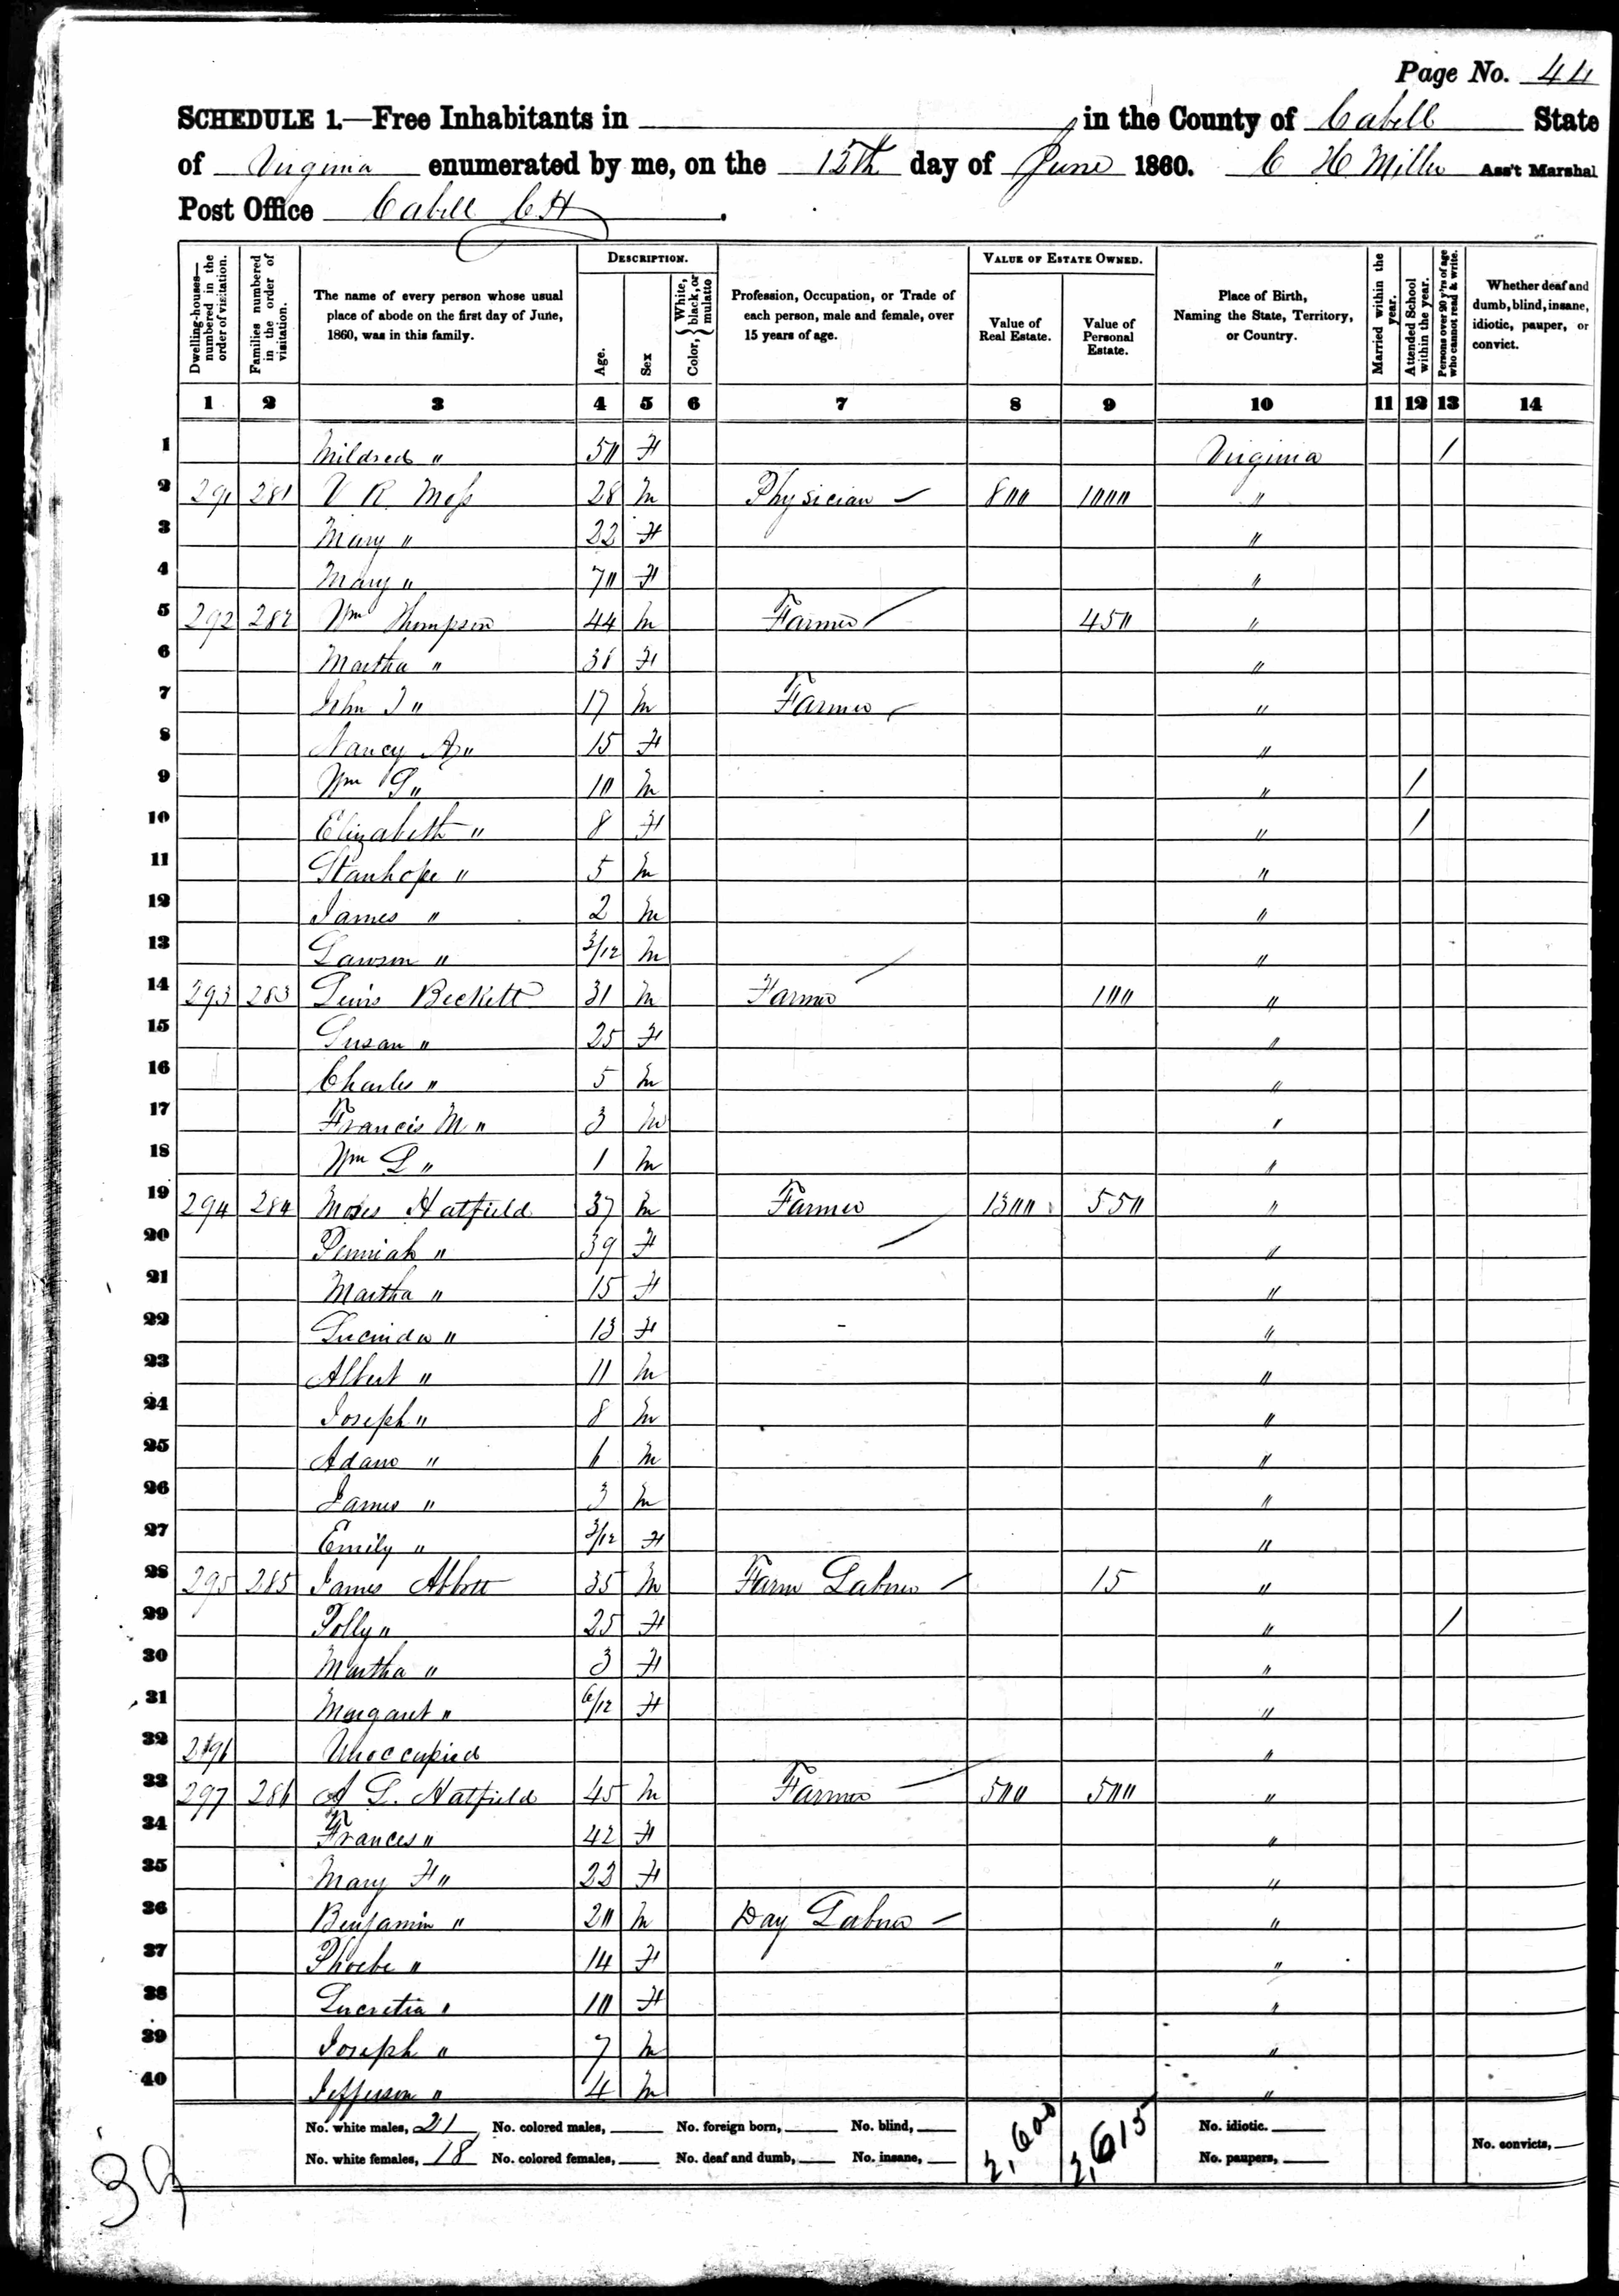 Page No. 44
SCHEDULE 1.—Free Inhabitants in in the County of Cabell State
of Virginia enumerated by me, on the 15th day of June 1860. C H Miller Ass't Marshal
Post Office Cabell C.H.
Dwelling-houses—numbered in the order of visitation.
Families numbered in the order of visitation.
The name of every person whose usual place of abode on the first day of June, 1860, was in this family.
DESCRIPTION.
Age.
Sex
Color, { White, black, or mulatto
Profession, Occupation, or Trade of each person, male and female, over 15 years of age.
VALUE OF ESTATE OWNED.
Value of Real Estate.
Value of Personal Estate.
Place of Birth, Naming the State, Territory, or Country.
Married within the year.
Attended School within the year.
Persons over 20 y'rs of age who cannot read & write.
Whether deaf and dumb, blind, insane, idiotic, pauper, or convict.
1 2 3 4 5 6 7 8 9 10 11 12 13 14
1 Mildred " 50 F Virginia /
2 291 281 V R Moss 28 M Physician 800 1000 "
3 Mary " 22 F "
4 Mary " 70 F "
5 292 282 Wm Thompson 44 M Farmer 450 "
6 Martha " 38 F "
7 John " 17 M Farmer "
8 Nancy A " 15 F "
9 Wm " 10 M " /
10 Elizabeth " 8 F " /
11 Stanhope " 5 M "
12 James " 2 M "
13 Lawson " 3/12 M "
14 293 283 Lewis Beckett 31 M Farmer 100 "
15 Susan " 25 F "
16 Charles " 5 M "
17 Francis M " 3 M "
18 Wm L " 1 M "
19 294 284 Moses Hatfield 37 M Farmer 1300 550 "
20 " 39 F "
21 Martha " 15 F "
22 Lucinda " 13 F "
23 Albert " 11 M "
24 Joseph " 8 M "
25 Adam " 6 M "
26 James " 3 M "
27 Emily " 3/12 F "
28 295 285 James Abbott 35 M Farm Laborer 15 "
29 Polly " 25 F " /
30 Martha " 3 F "
31 Margaret " 6/12 F "
32 296 Unoccupied "
33 297 286 A L. Hatfield 45 M Farmer 500 500 "
34 Frances " 42 F "
35 Mary F " 22 F "
36 Benjamin " 20 M Day Laborer "
37 Phoebe " 14 F "
38 Lucretia " 10 F "
39 Joseph " 7 M "
40 Jefferson " 4 M "
No. white males, 21 No. colored males, No. foreign born, No. blind, 2,600 2,615 No. idiotic.
No. white females, 18 No. colored females, No. deaf and dumb, No. insane, No. paupers, No. convicts,
39